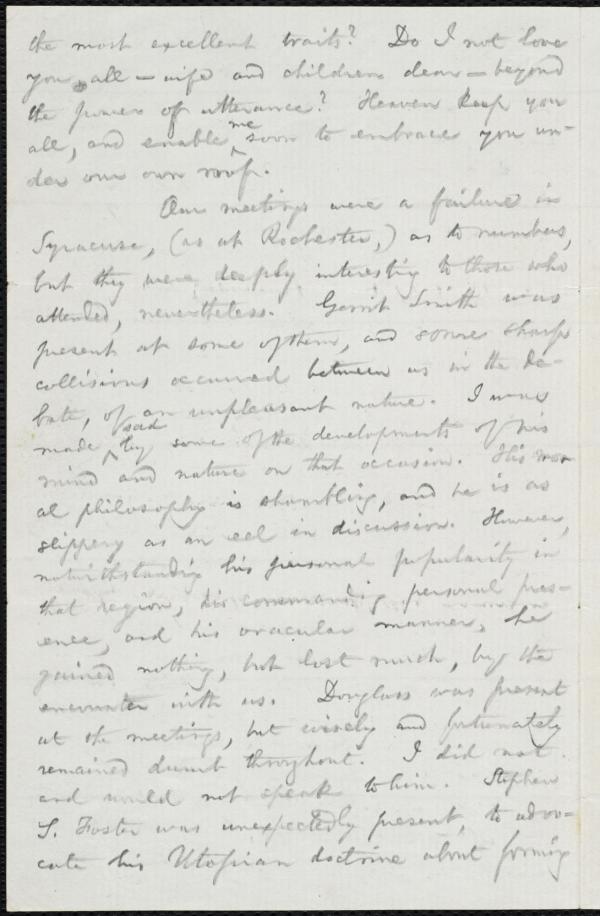 the most excellent traits? Do I not love
you all — wife and children dear — beyond
the power of utterance? Heaven keep you
all, and enable me soon to embrace you un-
der our own roof.
Our meetings were a failure in
Syracuse, (as at Rochester,) as to numbers,
but they were deeply interesting to those who
attended, nevertheless. Gerrit Smith was
present at some of them, and some sharp
collisions occurred between us in the de-
bate, of an unpleasant nature. I was
made sad by some of the developments of his
mind and nature on that occasion. His mor-
al philosophy is shambling, and he is as
slippery as an eel in discussion. However,
notwithstanding his personal popularity in
that region, his commanding personal pres-
ence, and his oracular manner, he
gained nothing, but lost much, by the
encounter with us. Douglass was present
at the meetings, but wisely and fortunately
remained dumb throughout. I did not
and would not speak to him. Stephen
S. Foster was unexpectedly present, to advo-
cate his Utopian doctrine about forming